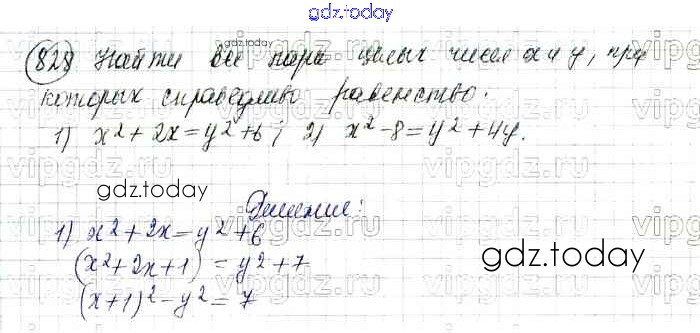 gdz.today
828 Найти все пары целых чисел x и y, при
которых справедливо равенство.
1) x² + 2x = y² + 6 ; 2) x² - 8 = y² + 4y.
gdz.today
Решение:
1) x² + 2x = y² + 6
(x² + 2x + 1) = y² + 7
gdz.today
(x + 1)² - y² = 7
vipgdz.